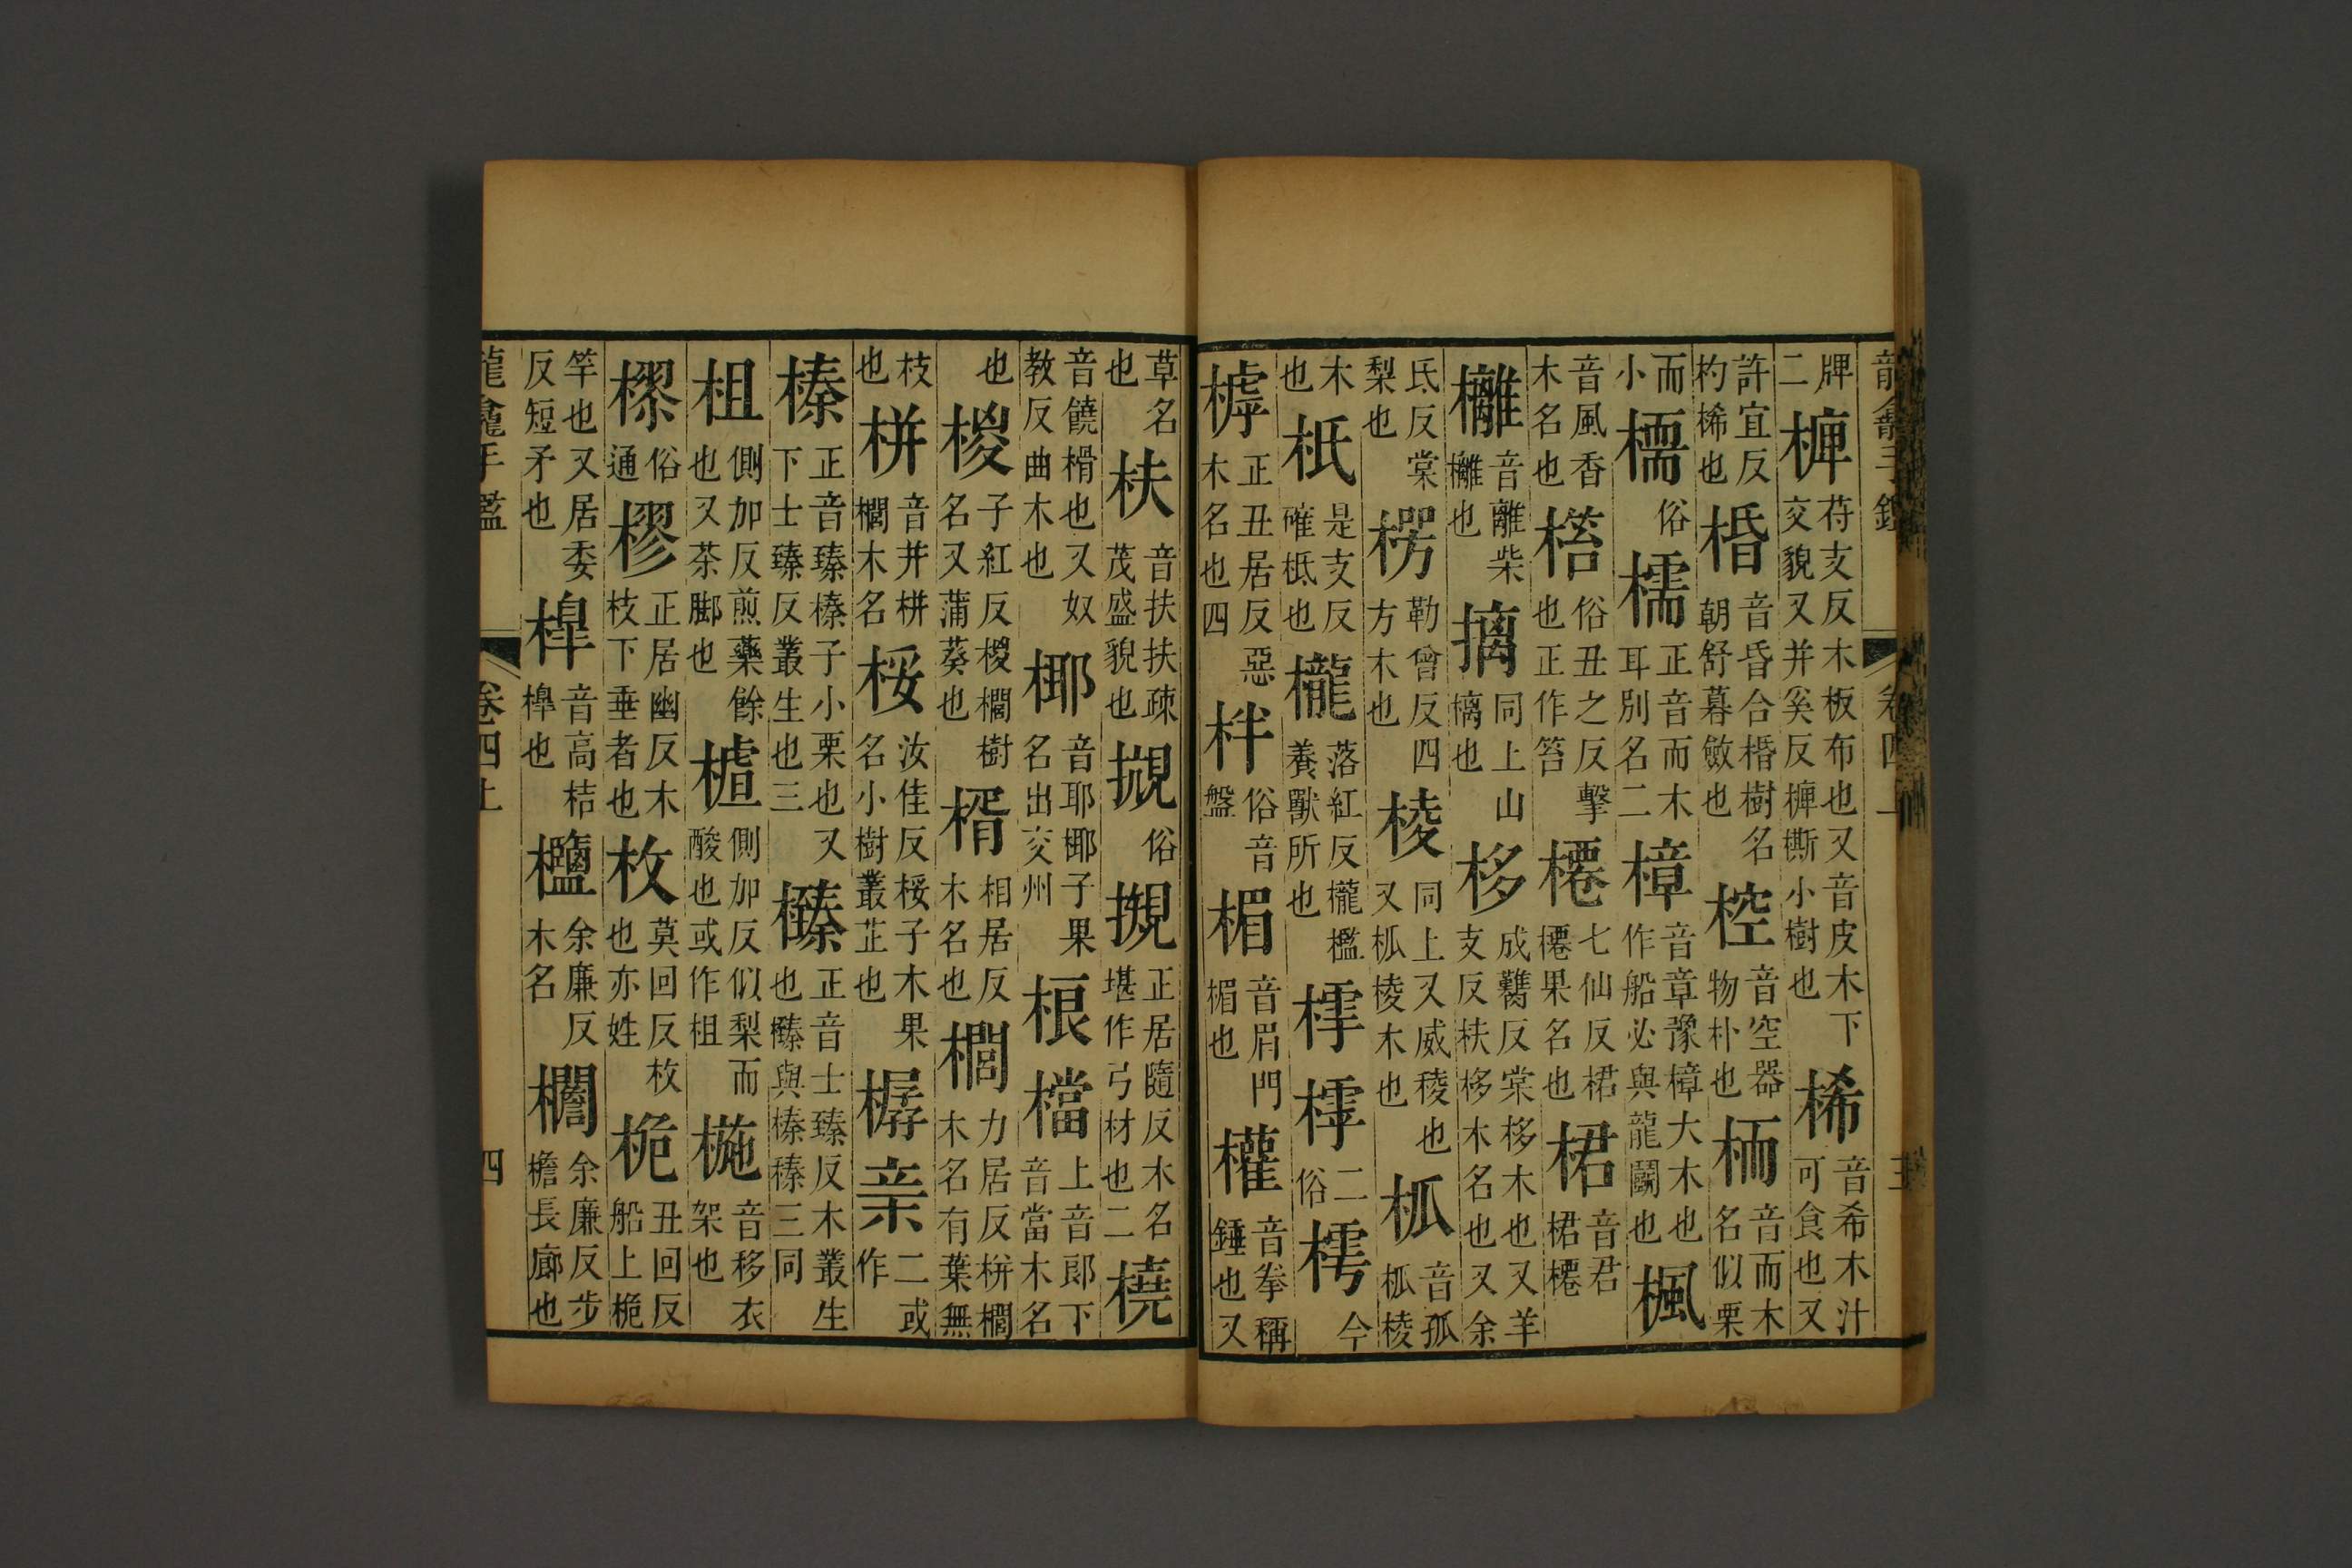 龍龕手鑑 卷四上 三
牌二 椑 苻支反木板布也又音皮木下交貌又并奚反椑撕小樹也 桸 音希木汁可食也又
許宜反杓桸也 棔 音昏合棔樹名朝舒暮斂也 椌 音空器物朴也 栭 音而木名似栗
而小 檽 俗 檽 正音而木耳別名二 樟 音章豫樟大木也作船必與龍鬪也 楓
音風香木名也 㮟 俗丑之反擊也正作笞 櫏 七仙反桾櫏果名也 桾 音君桾櫏
欐 音離柴欐也 摛 同上山樆也 栘 成觿反棠栘木也又羊支反扶栘木名也又余
氐反棠梨也 楞 勒曾反四方木也 棱 同上又威稜也又柧棱木也 柧 音孤柧棱
木也 柢 是支反確柢也 櫳 落紅反櫳檻養獸所也 樗 樗 二俗 樗 今
樗 正丑居反惡木名也四 柈 俗音盤 楣 音眉門楣也 權 音拳稱錘也又
草名也 枎 音扶扶疎茂盛貌也 槻 俗 槻 正居隨反木名堪作弓材也二 橈
音饒楫也又奴教反曲木也 椰 音耶椰子果名出交州 桹 檔 上音郎下音當木名
也 椶 子紅反椶櫚樹名又蒲葵也 楈 相居反木名也 櫚 力居反栟櫚木名有葉無
枝也 栟 音并栟櫚木名 桵 汝隹反桵子木果名小樹叢芷也 樼 亲 二或作
榛 正音臻榛子小栗也又下士臻反叢生也三 㯸 正音士臻反木叢生也㯸與榛榛三同
柤 側加反煎藥餘也又茶腳也 樝 側加反似梨而酸也或作柤 椸 音移衣架也
樛 俗通 樛 正居幽反木枝下垂者也 枚 莫回反枚也亦姓 桅 丑回反船上桅
竿也又居委反短矛也 槹 音高桔槹也 櫺 余廉反木名 櫩 余廉反步檐長廊也
龍龕手鑑 卷四上 四